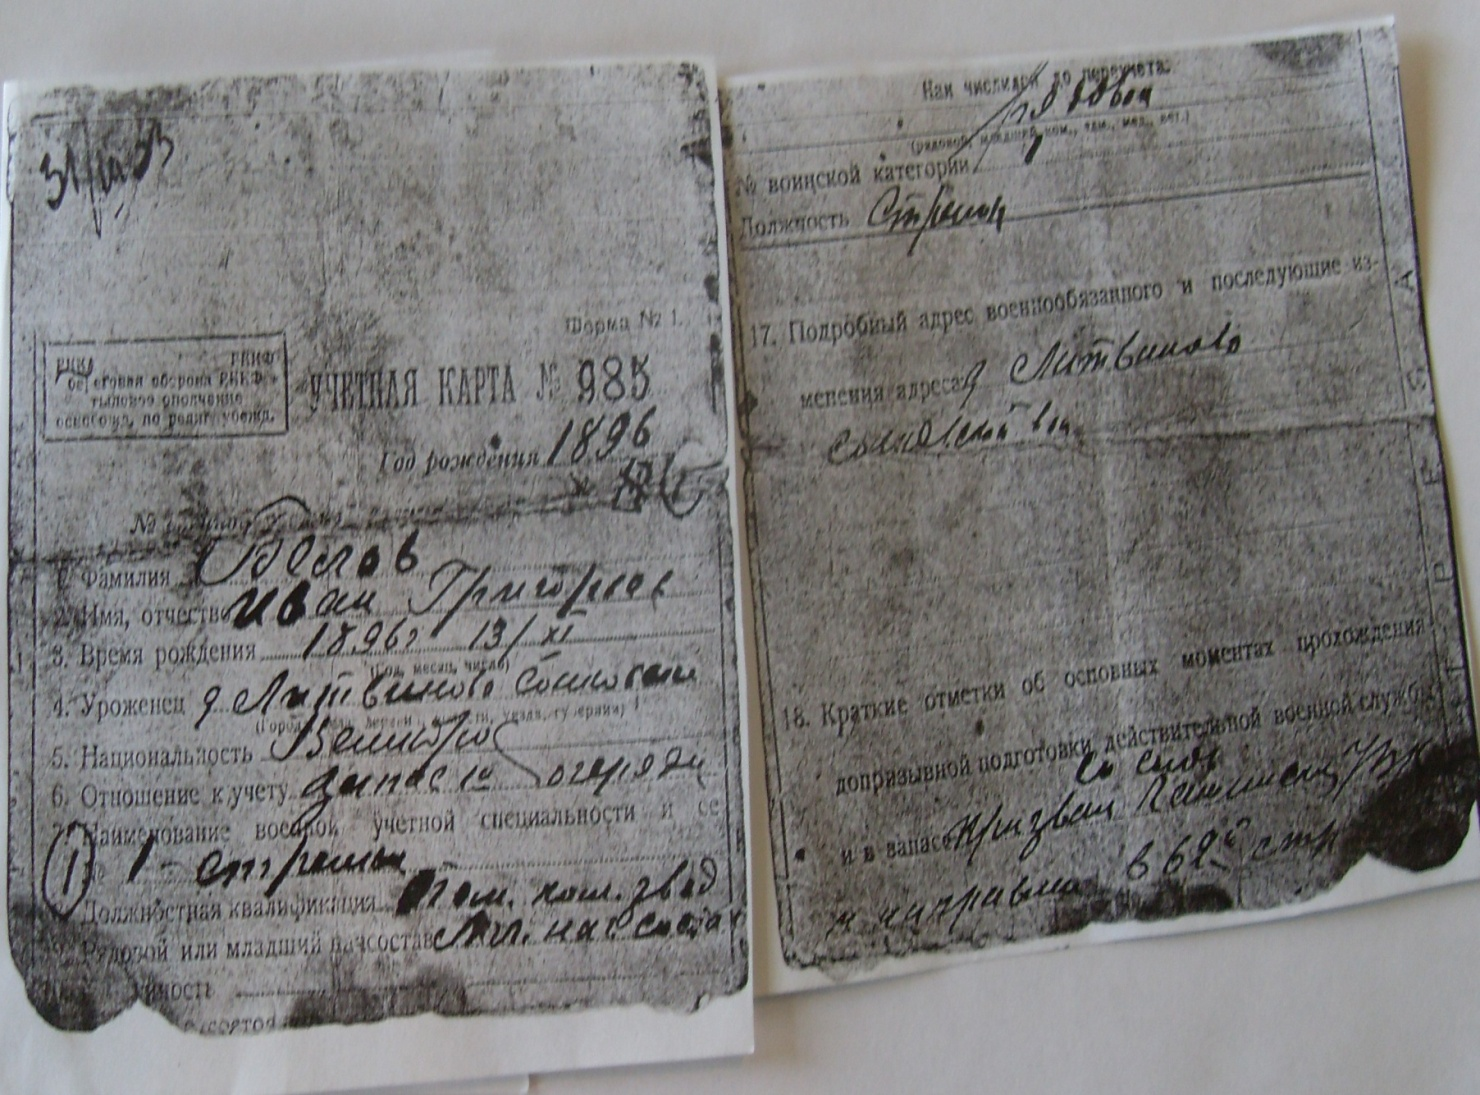 Форма № 1.
РККА РККФ
береговая оборона РККФ
тыловое ополчение
освобожд. по религ. убежд.
УЧЕТНАЯ КАРТА № 985
Год рождения 1896
№
1. Фамилия Белов
2. Имя, отчество Иван Григорьев
3. Время рождения 1896 г 13/XI
(Год, месяц, число)
4. Уроженец д Литвиново
5. Национальность Великорос
6. Отношение к учету запас 1й очереди
7. Наименование военной учетной специальности и ее
1 - стрелок
Должностная квалификация Пом. ком. взвод
9. Рядовой или младший начсостав Мл. нач состав
Как числился до переучета:
рядовой
(рядовой, младший ком., адм., мед., вет.)
№ воинской категории 1
Должность Стрелок
17. Подробный адрес военнообязанного и последующие из-
менения адреса д Литвиново
18. Краткие отметки об основных моментах прохождения
допризывной подготовки, действительной военной службы
и в запасе Призван РВК
и направлен в стр